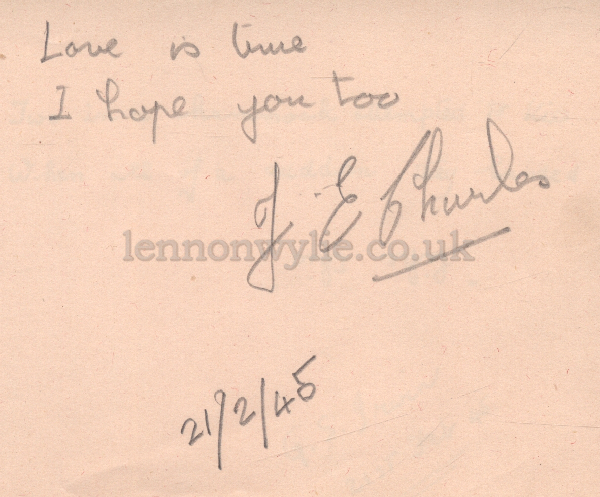 Love is true
I hope you too
J E Charles
lennonwylie.co.uk
21/2/45